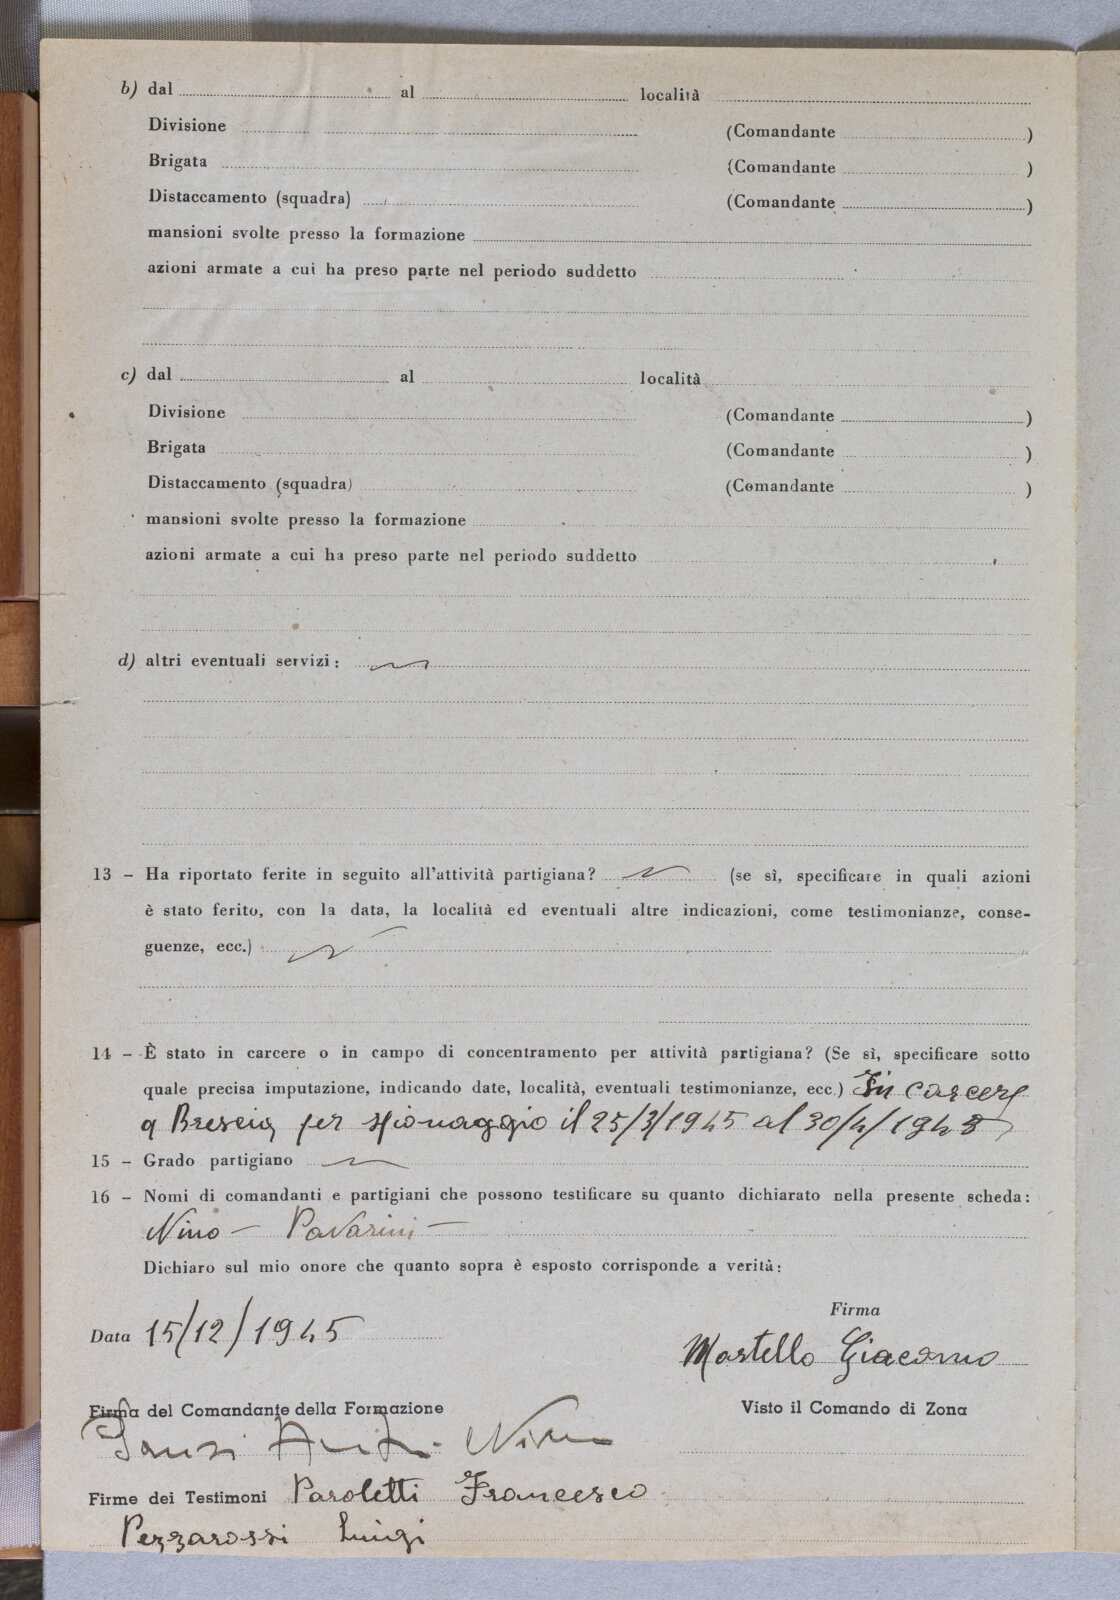 b) dal al località
Divisione (Comandante )
Brigata (Comandante )
Distaccamento (squadra) (Comandante )
mansioni svolte presso la formazione
azioni armate a cui ha preso parte nel periodo suddetto
c) dal al località
Divisione (Comandante )
Brigata (Comandante )
Distaccamento (squadra) (Comandante )
mansioni svolte presso la formazione
azioni armate a cui ha preso parte nel periodo suddetto
d) altri eventuali servizi:
13 – Ha riportato ferite in seguito all'attività partigiana? (se sì, specificare in quali azioni
è stato ferito, con la data, la località ed eventuali altre indicazioni, come testimonianze, conse-
guenze, ecc.)
14 – È stato in carcere o in campo di concentramento per attività partigiana? (Se sì, specificare sotto
quale precisa imputazione, indicando date, località, eventuali testimonianze, ecc.) In carcere
a Brescia per spionaggio il 25/3/1945 al 30/4/1945
15 – Grado partigiano
16 – Nomi di comandanti e partigiani che possono testificare su quanto dichiarato nella presente scheda:
Nino – Pavarini –
Dichiaro sul mio onore che quanto sopra è esposto corrisponde a verità:
Firma
Data 15/12/1945
Martello Giacomo
Firma del Comandante della Formazione Visto il Comando di Zona
Nino
Firme dei Testimoni Paroletti Francesco
Pezzarossi Luigi